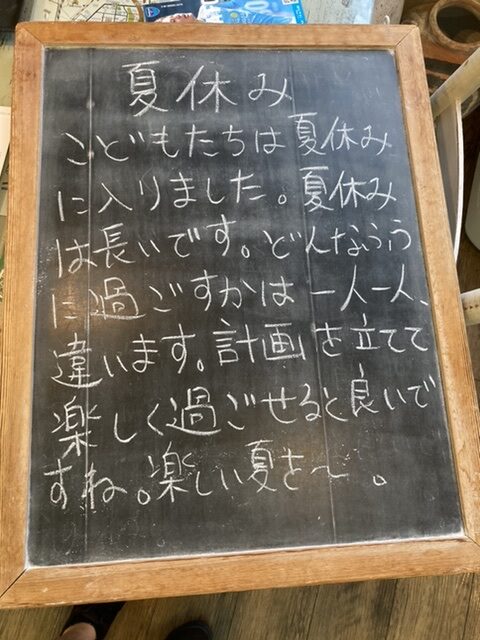 夏休み
こどもたちは夏休み
に入りました。夏休み
は長いです。どんなふう
に過ごすかは一人一人、
違います。計画を立てて
楽しく過ごせると良いで
すね。楽しい夏を〜。